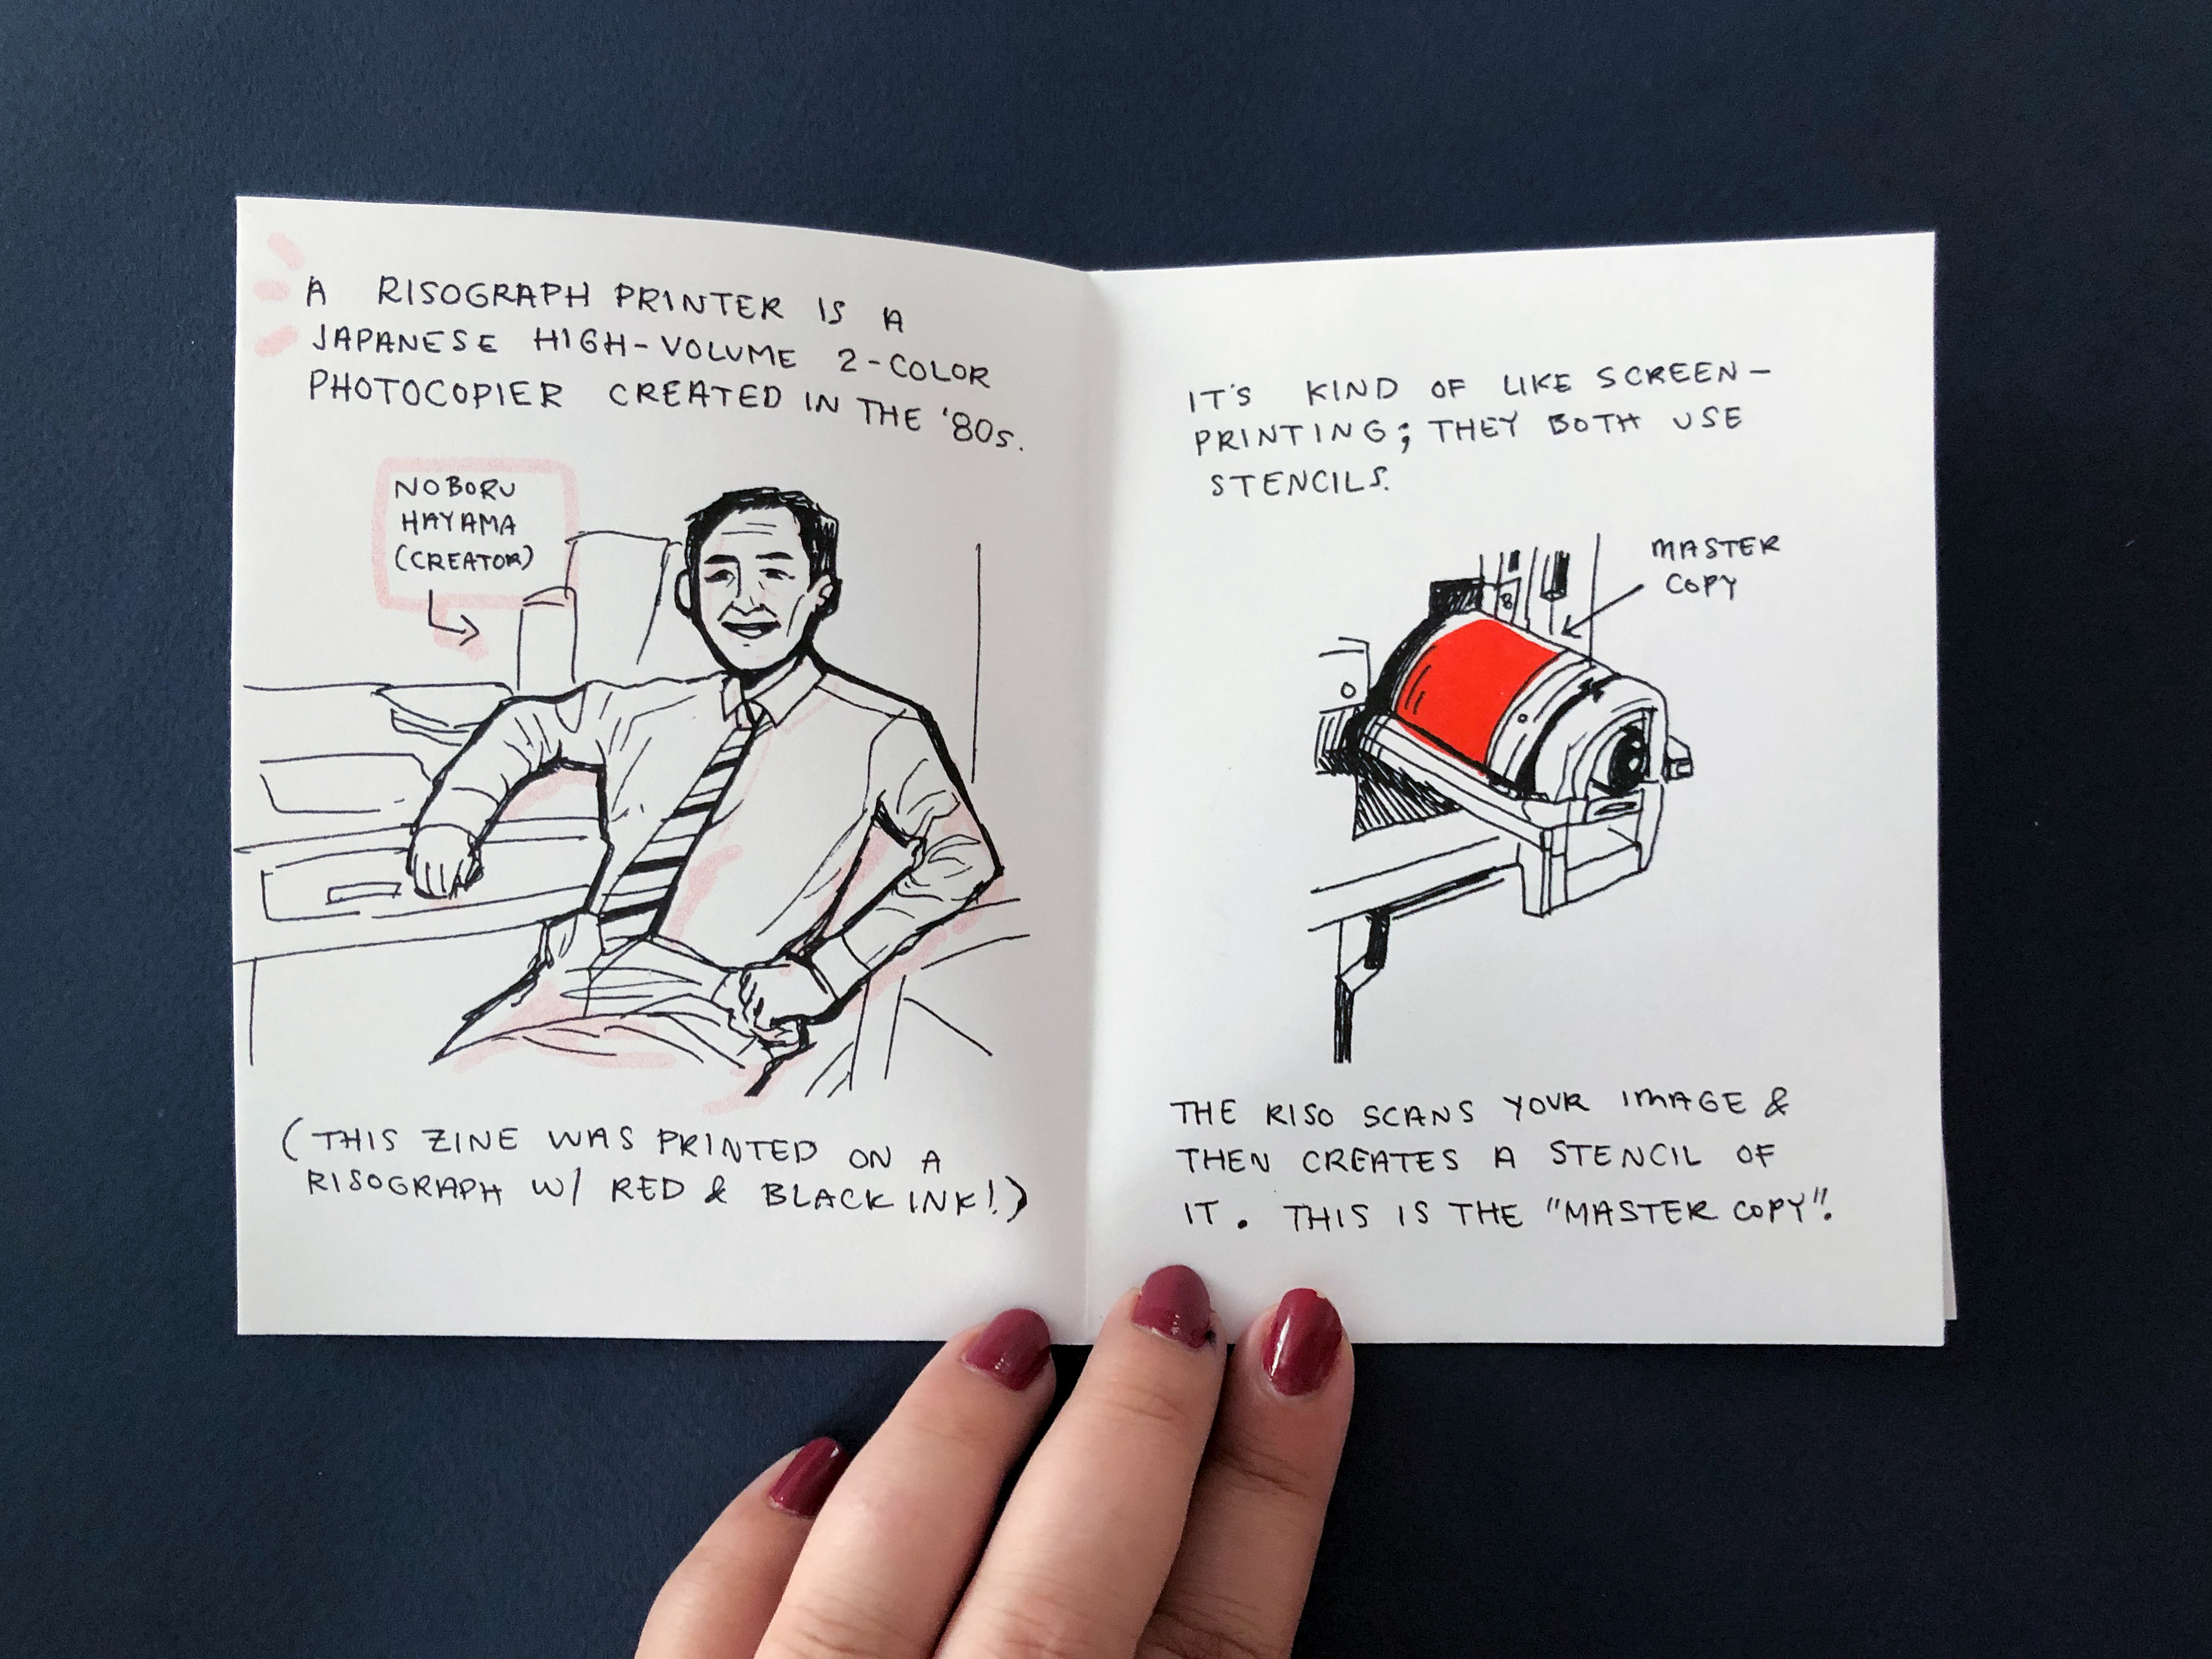 A RISOGRAPH PRINTER IS A
JAPANESE HIGH-VOLUME 2-COLOR
PHOTOCOPIER CREATED IN THE '80s.
NOBORU
HAYAMA
(CREATOR)
(THIS ZINE WAS PRINTED ON A
RISOGRAPH W/ RED & BLACK INK!)
IT'S KIND OF LIKE SCREEN-
PRINTING; THEY BOTH USE
STENCILS.
MASTER
COPY
B
THE RISO SCANS YOUR IMAGE &
THEN CREATES A STENCIL OF
IT. THIS IS THE "MASTER COPY".